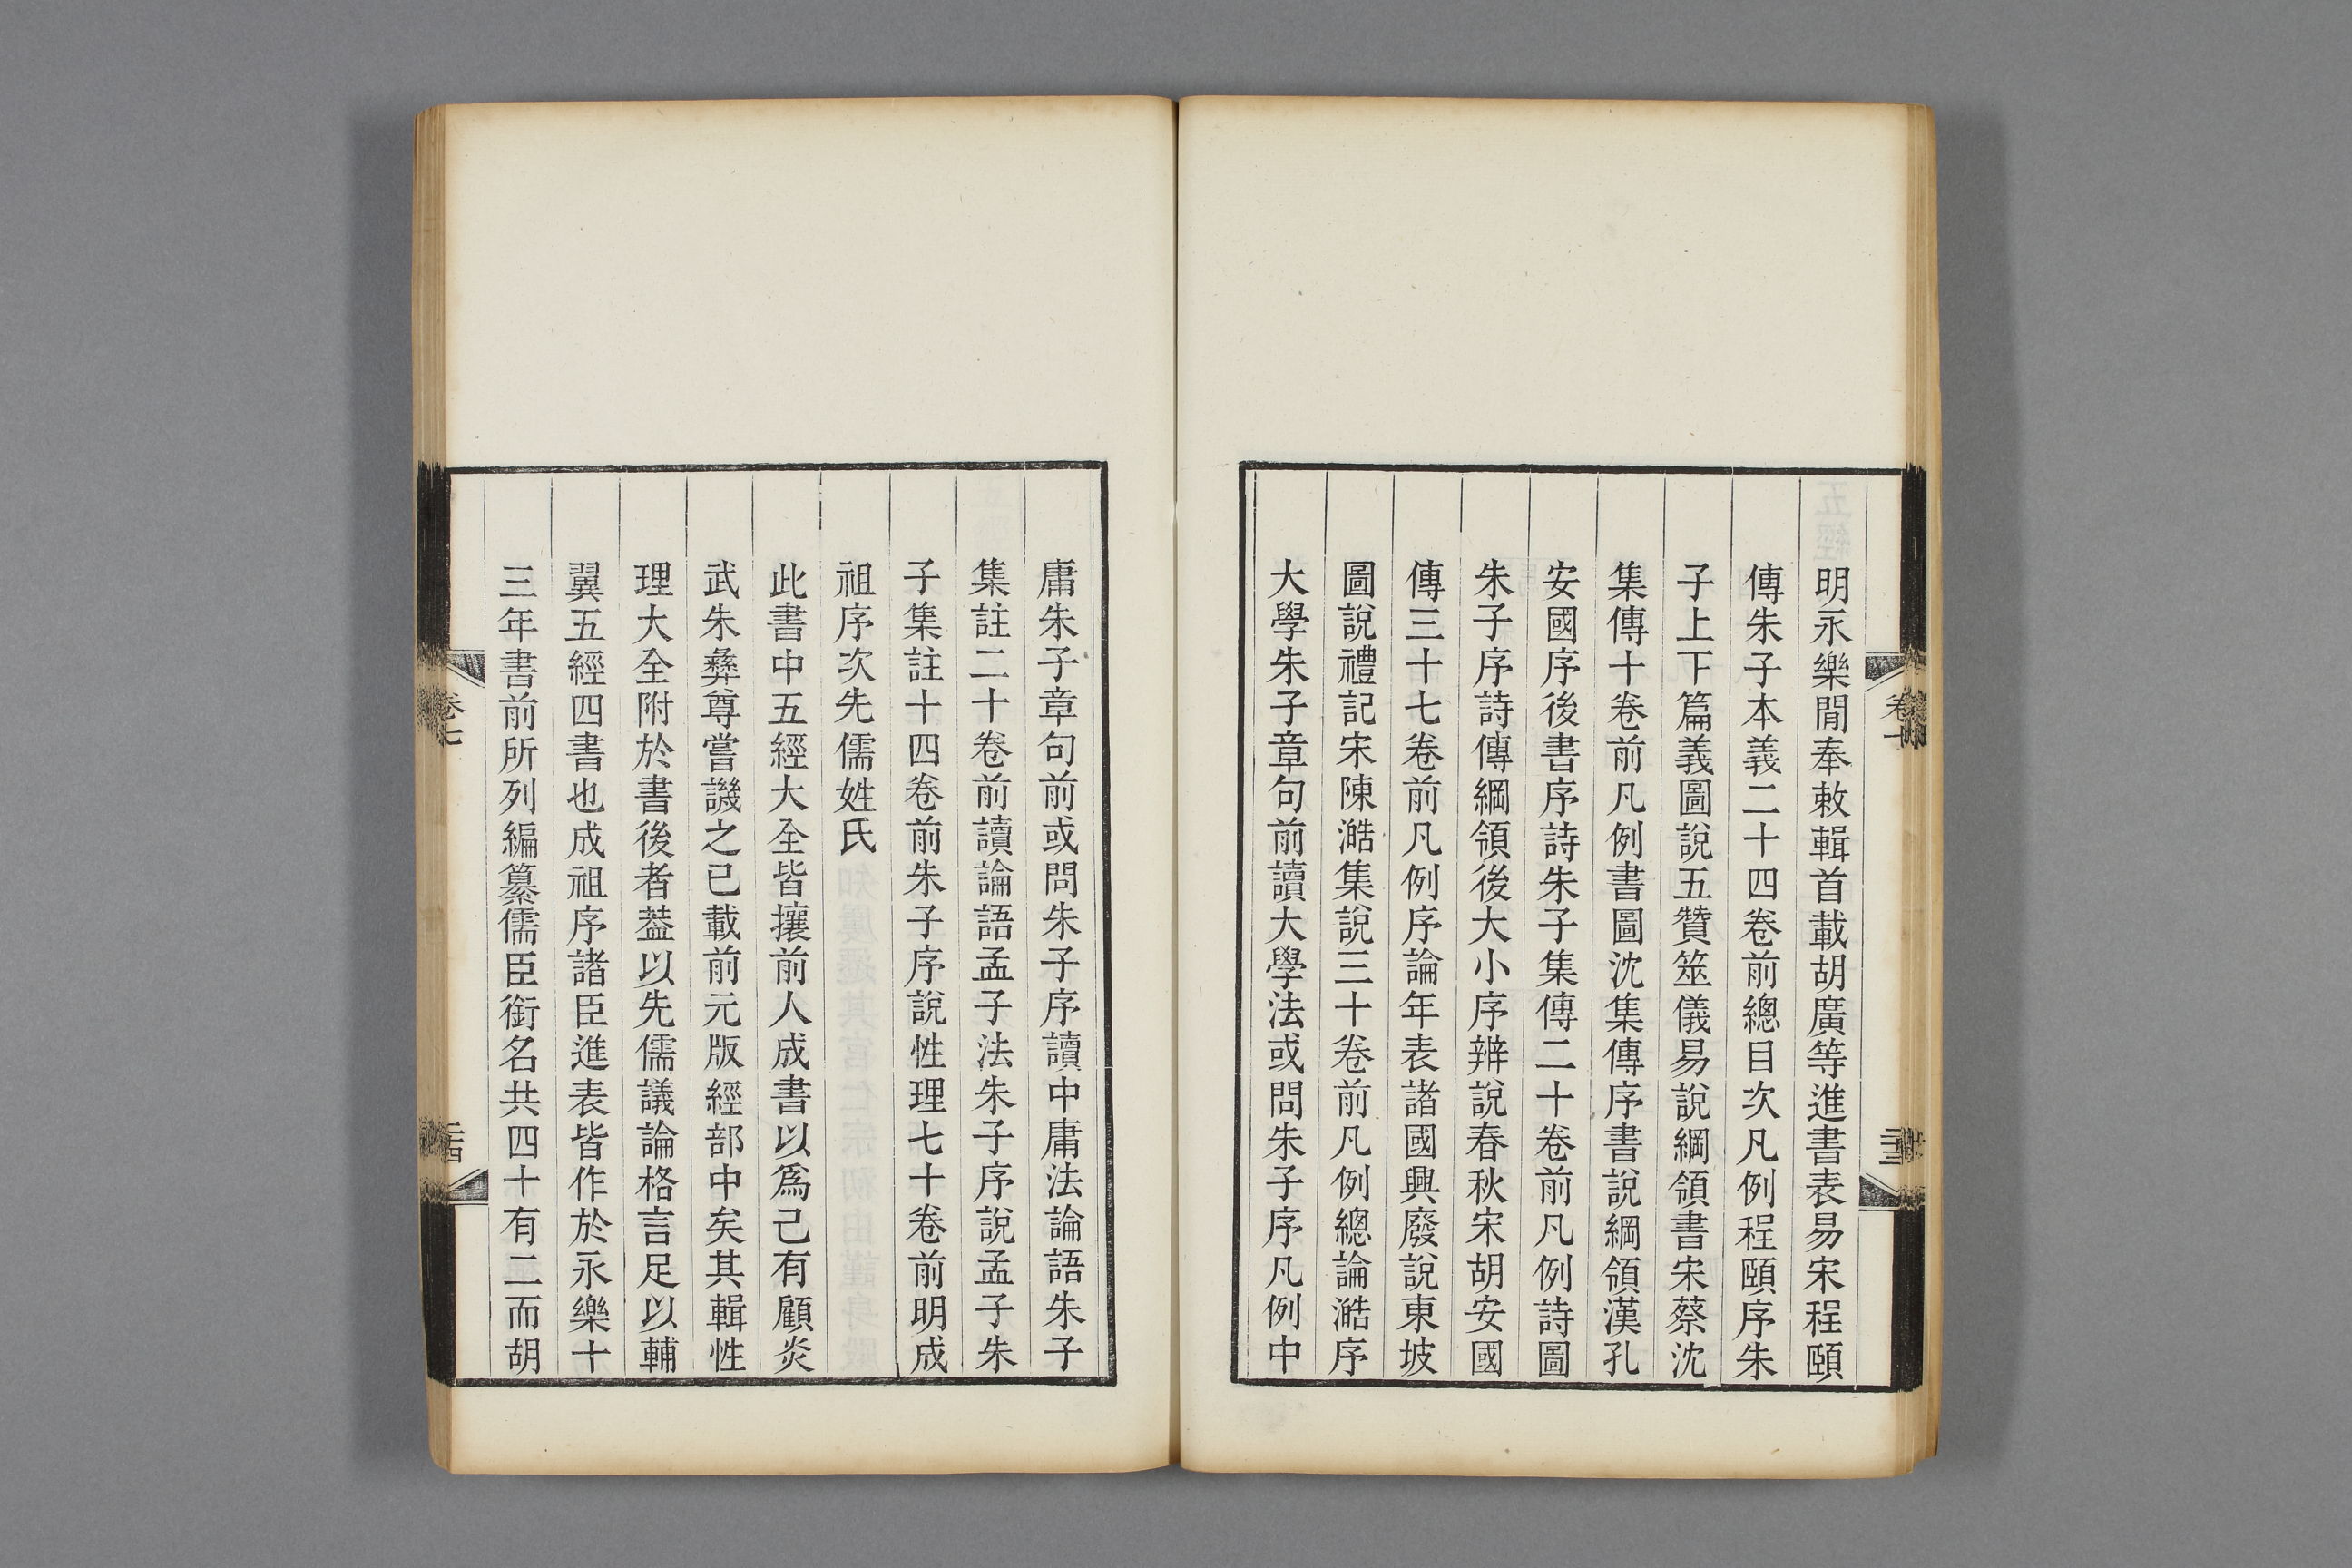 明永樂閒奉敕輯首載胡廣等進書表易宋程頤
傳朱子本義二十四卷前總目次凡例程頤序朱
子上下篇義圖說五贊筮儀易說綱領書宋蔡沈
集傳十卷前凡例書圖沈集傳序書說綱領漢孔
安國序後書序詩朱子集傳二十卷前凡例詩圖
朱子序詩傳綱領後大小序辨說春秋宋胡安國
傳三十七卷前凡例序論年表諸國興廢說東坡
圖說禮記宋陳澔集說三十卷前凡例總論澔序
大學朱子章句前讀大學法或問朱子序凡例中
庸朱子章句前或問朱子序讀中庸法論語朱子
集註二十卷前讀論語孟子法朱子序說孟子朱
子集註十四卷前朱子序說性理七十卷前明成
祖序次先儒姓氏
此書中五經大全皆攘前人成書以爲己有顧炎
武朱彝尊嘗譏之已載前元版經部中矣其輯性
理大全附於書後者葢以先儒議論格言足以輔
翼五經四書也成祖序諸臣進表皆作於永樂十
三年書前所列編纂儒臣銜名共四十有二而胡
卷七
二十四